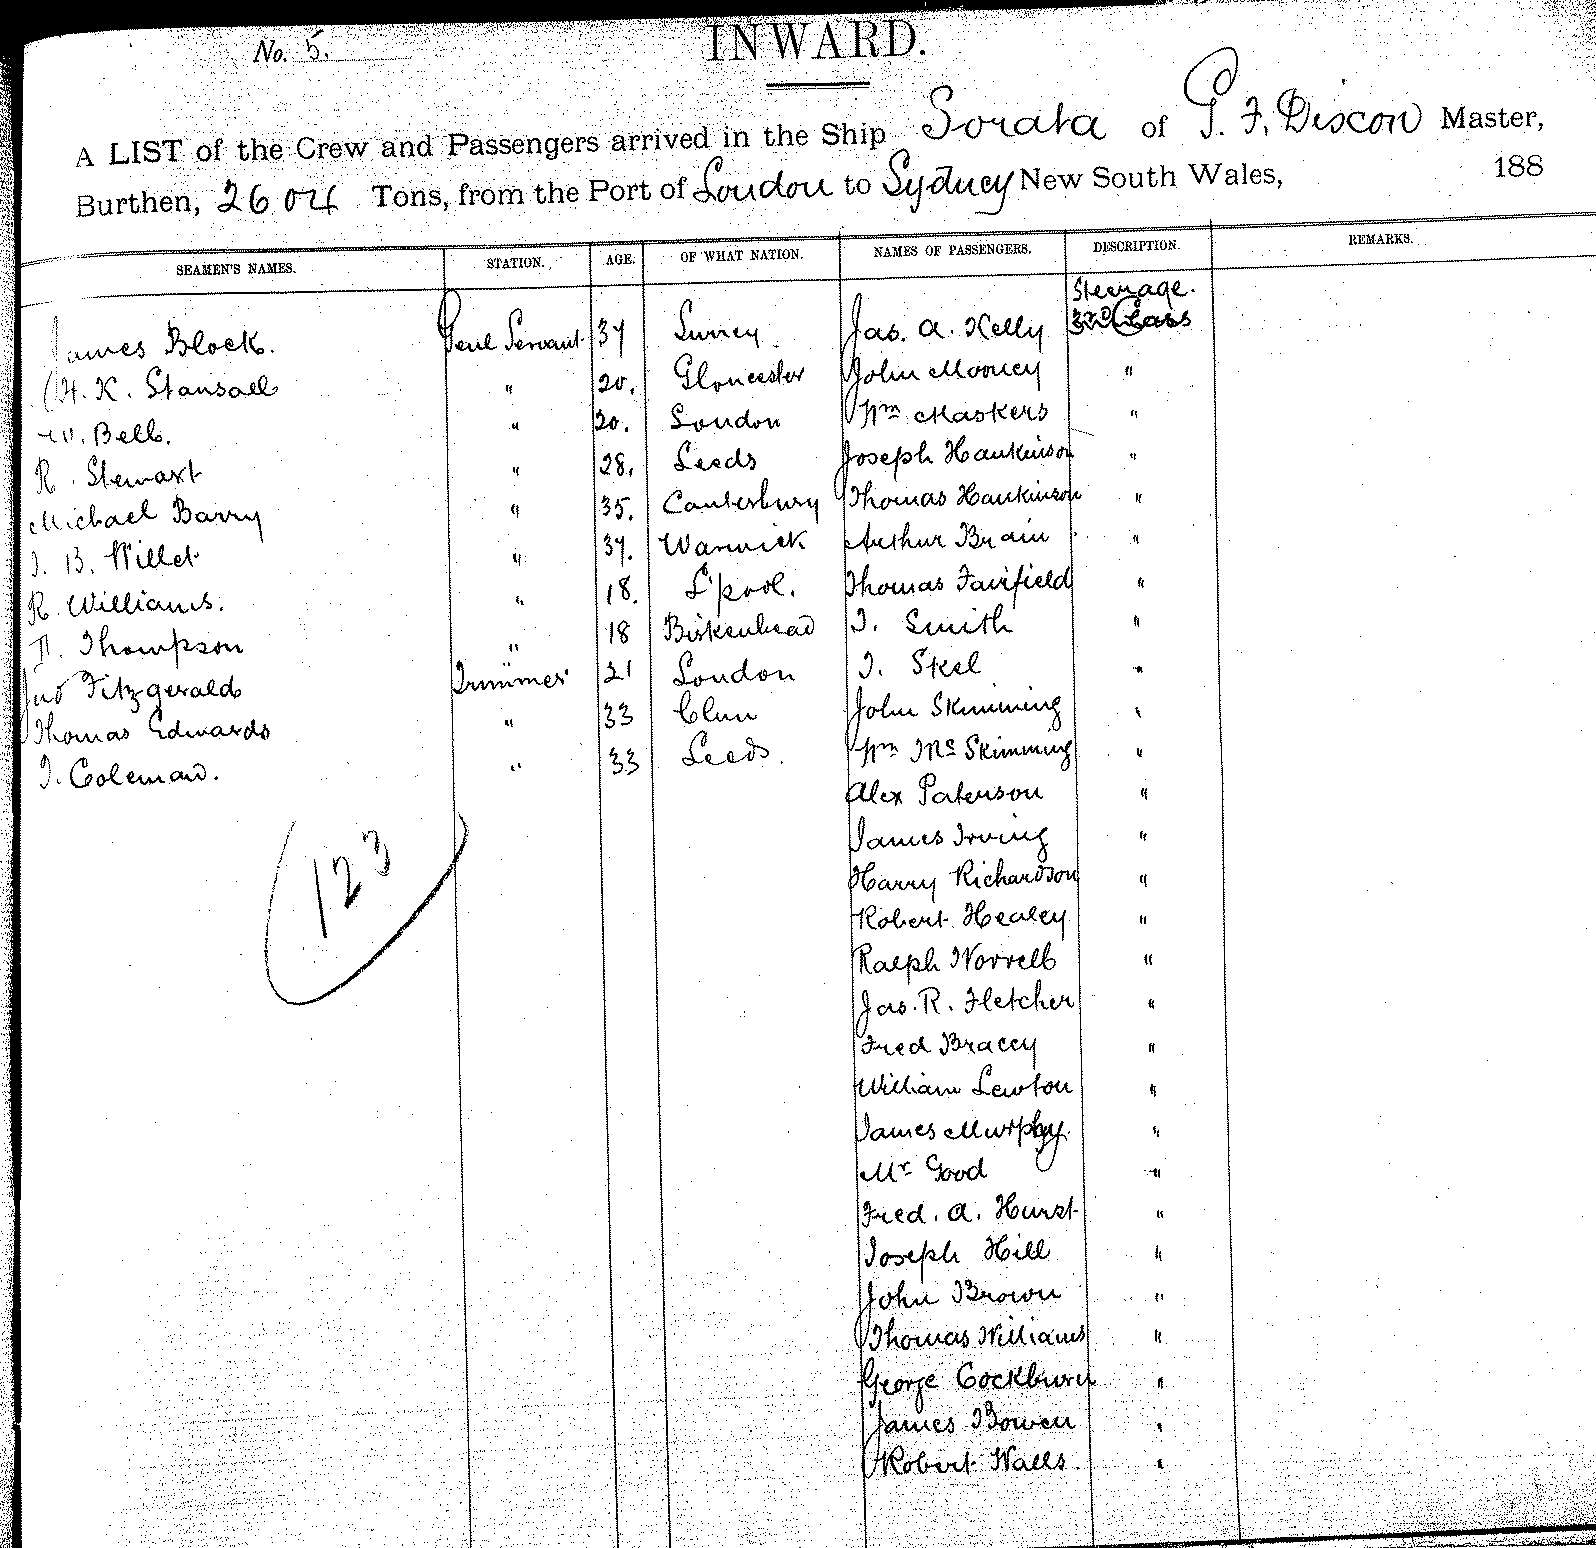 No. 5.
INWARD.
A LIST of the Crew and Passengers arrived in the Ship Sorata of Master,
Burthen, 2604 Tons, from the Port of London to Sydney New South Wales, 188
SEAMEN'S NAMES. STATION. AGE. OF WHAT NATION. NAMES OF PASSENGERS. DESCRIPTION. REMARKS.
Steerage.
James Block. Genl Servant 37 Surrey Jas. A. Kelly 3rd Class
H. K. Stansall " 20. Gloucester John Mooney "
W. Bell. " 20. London Wm Maskers "
R. Stewart " 28. Leeds Joseph Hankinson "
Michael Barry " 35. Canterbury Thomas Hankinson "
J. B. Willet " 37. Warwick Arthur Brain "
R. Williams. " 18. L'pool. Thomas Fairfield "
Thompson " 18 Birkenhead J. Smith "
Jno Fitzgerald Trimmer 21 London J. Skel "
Thomas Edwards " 33 Clun John Skimming "
J. Coleman. " 33 Leeds. Wm Mc Skimming "
Alex Paterson "
James Irving "
123
Harry Richardson "
Robert Healey "
Ralph Worrell "
Jas. R. Fletcher "
Fred Bracey "
William Lewton "
James Murphy. "
Mr Good "
Fred. A. Hurst "
Joseph Hill "
John Brown "
Thomas Williams "
George Cockburn "
James Bowen "
Robert Walls. "